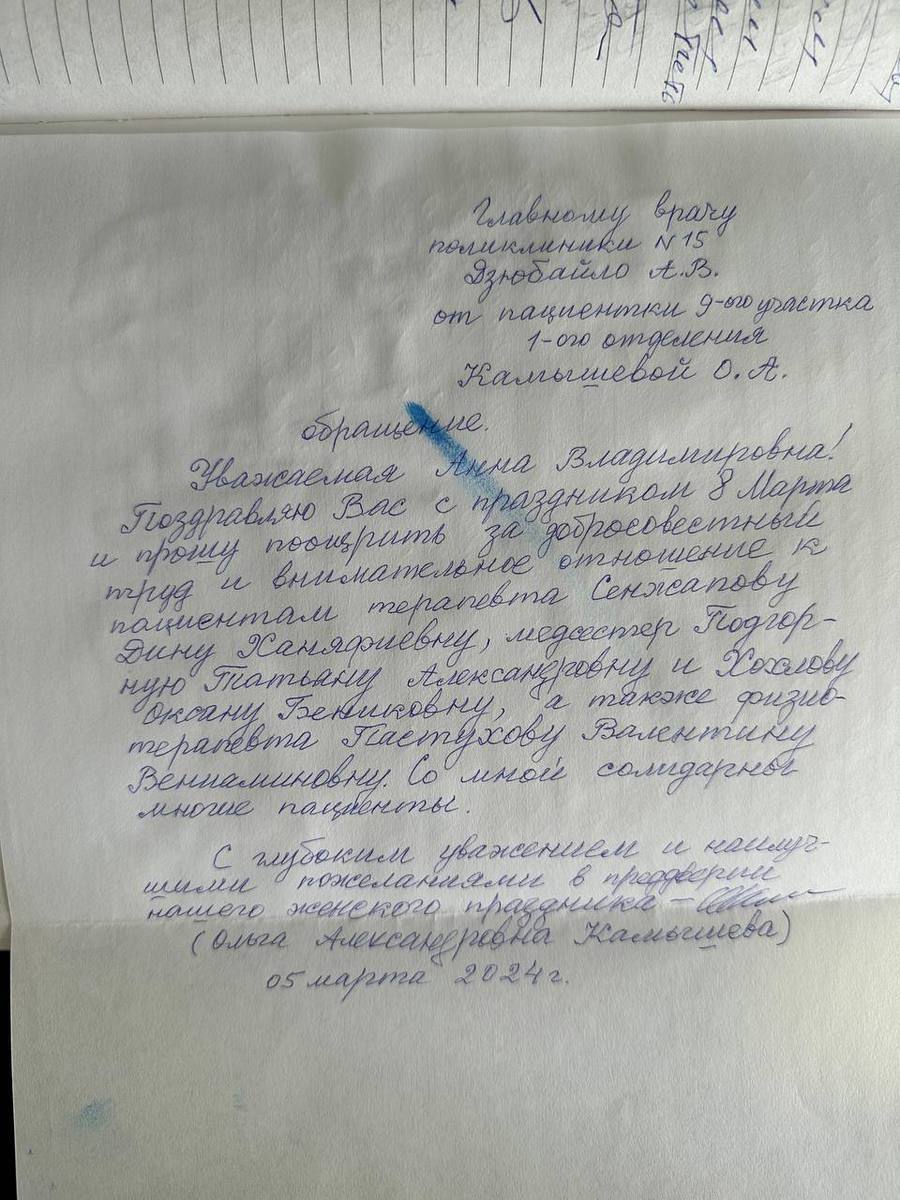 Главному врачу
поликлиники N 15
Дзюбайло А.В.
от пациентки 9-ого участка
1-ого отделения
Камышевой О.А.
обращение.
Уважаемая Анна Владимировна!
Поздравляю Вас с праздником 8 Марта
и прошу поощрить за добросовестный
труд и внимательное отношение к
пациентам терапевта Сенжапову
Дину Ханяфиевну, медсестер Подгор-
ную Татьяну Александровну и Хохлову
Оксану Бениковну, а также физио-
терапевта Пастухову Валентину
Вениаминовну. Со мной солидарны
многие пациенты.
С глубоким уважением и наилуч-
шими пожеланиями в преддверии
нашего женского праздника –
(Ольга Александровна Камышева)
05 марта 2024г.